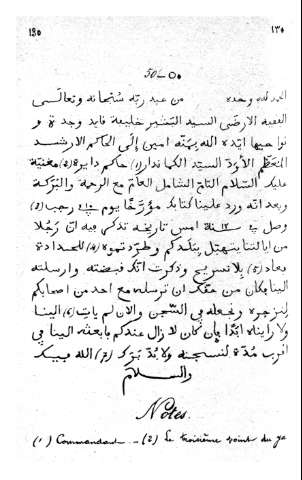 130 ١٣٠
50 — ٥٠
الحمد لله وحده من عبد ربّه سُبْحَانهُ وتعالى
الفقيه الارضَى السيد البَشير خليفة قايد وجدة و
نواحيها ايّده الله بِمَنّه امين إلى الحاكم الارشد
المعظّم الأودّ السيّد الكماندار (١) حاكم دايرة (٢) مغنيّة
عليك السّلام التامّ الشامل العامّ مع الرحمة والبركة
وبعد انه ورد علينا كتابك مؤرّخًا يوم رجب (٣)
وصل امس تاريخه تذكر فيه ان رجُلا
من ايالتنا ببلدكم وطرّدتموه (٤) للحدادة
بعاد (٥) بلا تسريح وذكرت انّك قبضته وارسلته
الينا وكان من حقّك ان ترسله مع احد من اصحابكم
لنزجره ونجعله فى السّجن والآن لم يات (٦) الينا
ولا رايناه ابدًا فإن كان لا زال عندكم فابعثه الينا فى
اقرب مُدّة لنسجنه ولا بُدّ بَرَكَ (٧) الله فيك
والسلام
Notes.
(1) Commandant — (2) Le troisième point du ya